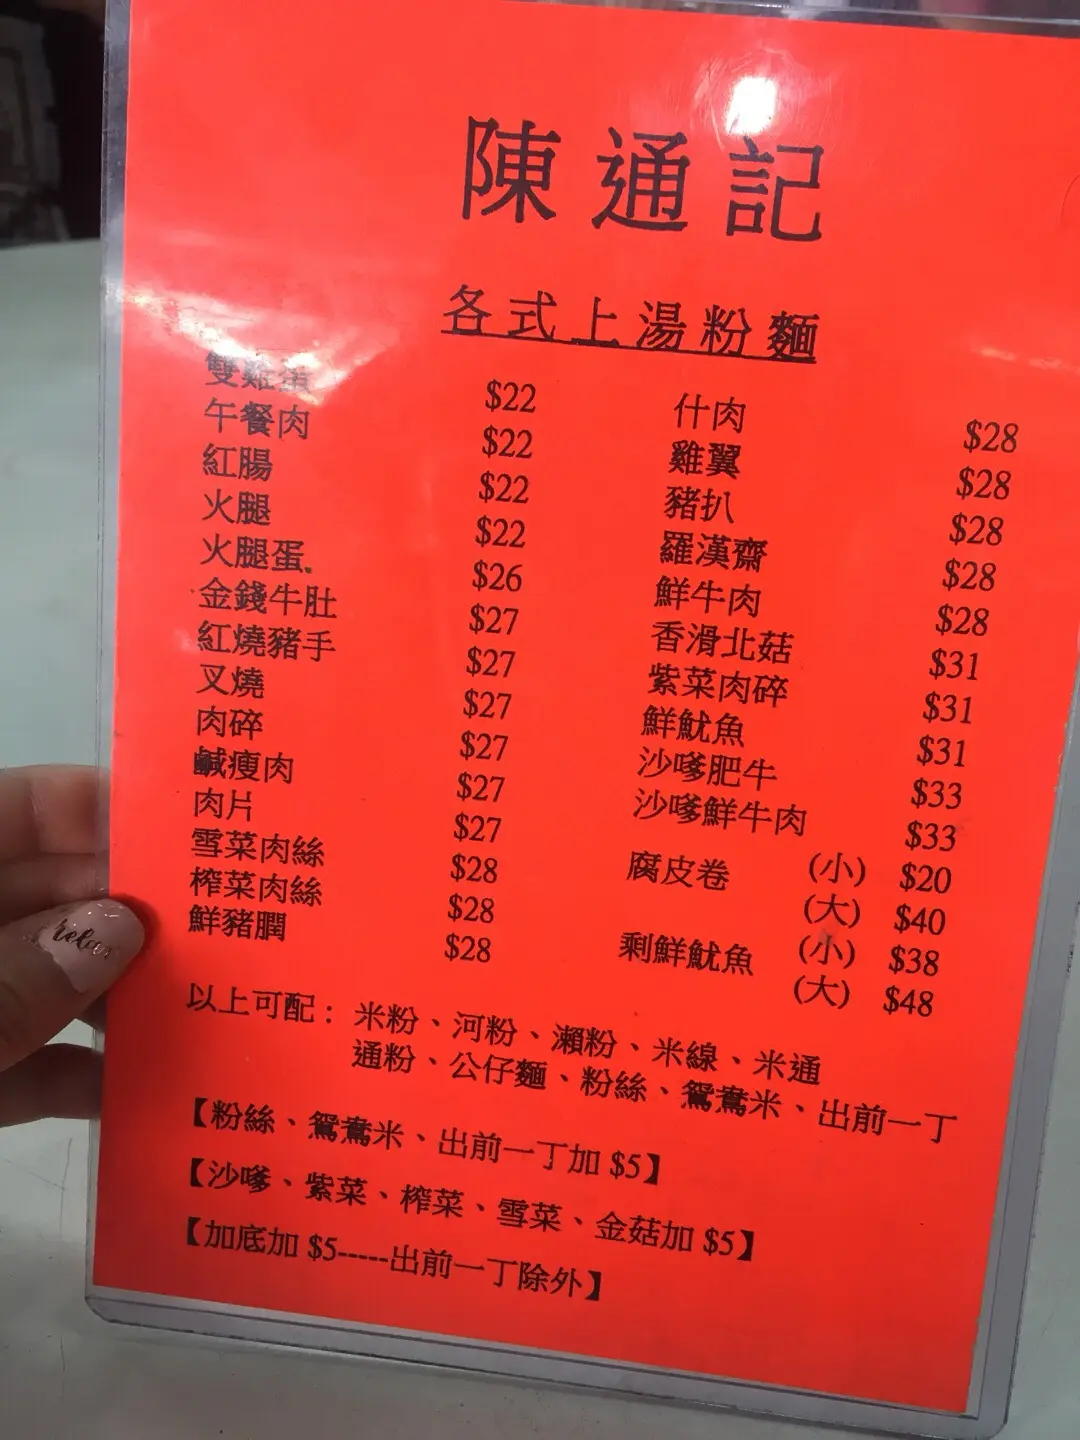 陳通記
各式上湯粉麵
雙雞蛋 $22
午餐肉 $22
紅腸 $22
火腿 $22
火腿蛋 $26
金錢牛肚 $27
紅燒豬手 $27
叉燒 $27
肉碎 $27
鹹瘦肉 $27
肉片 $27
雪菜肉絲 $28
榨菜肉絲 $28
鮮豬膶 $28
什肉 $28
雞翼 $28
豬扒 $28
羅漢齋 $28
鮮牛肉 $28
香滑北菇 $31
紫菜肉碎 $31
鮮魷魚 $31
沙嗲肥牛 $33
沙嗲鮮牛肉 $33
腐皮卷 (小) $20
(大) $40
剩鮮魷魚 (小) $38
(大) $48
以上可配：米粉、河粉、瀨粉、米線、米通
通粉、公仔麵、粉絲、鴛鴦米、出前一丁
【粉絲、鴛鴦米、出前一丁加 $5】
【沙嗲、紫菜、榨菜、雪菜、金菇加 $5】
【加底加 $5-----出前一丁除外】
relax